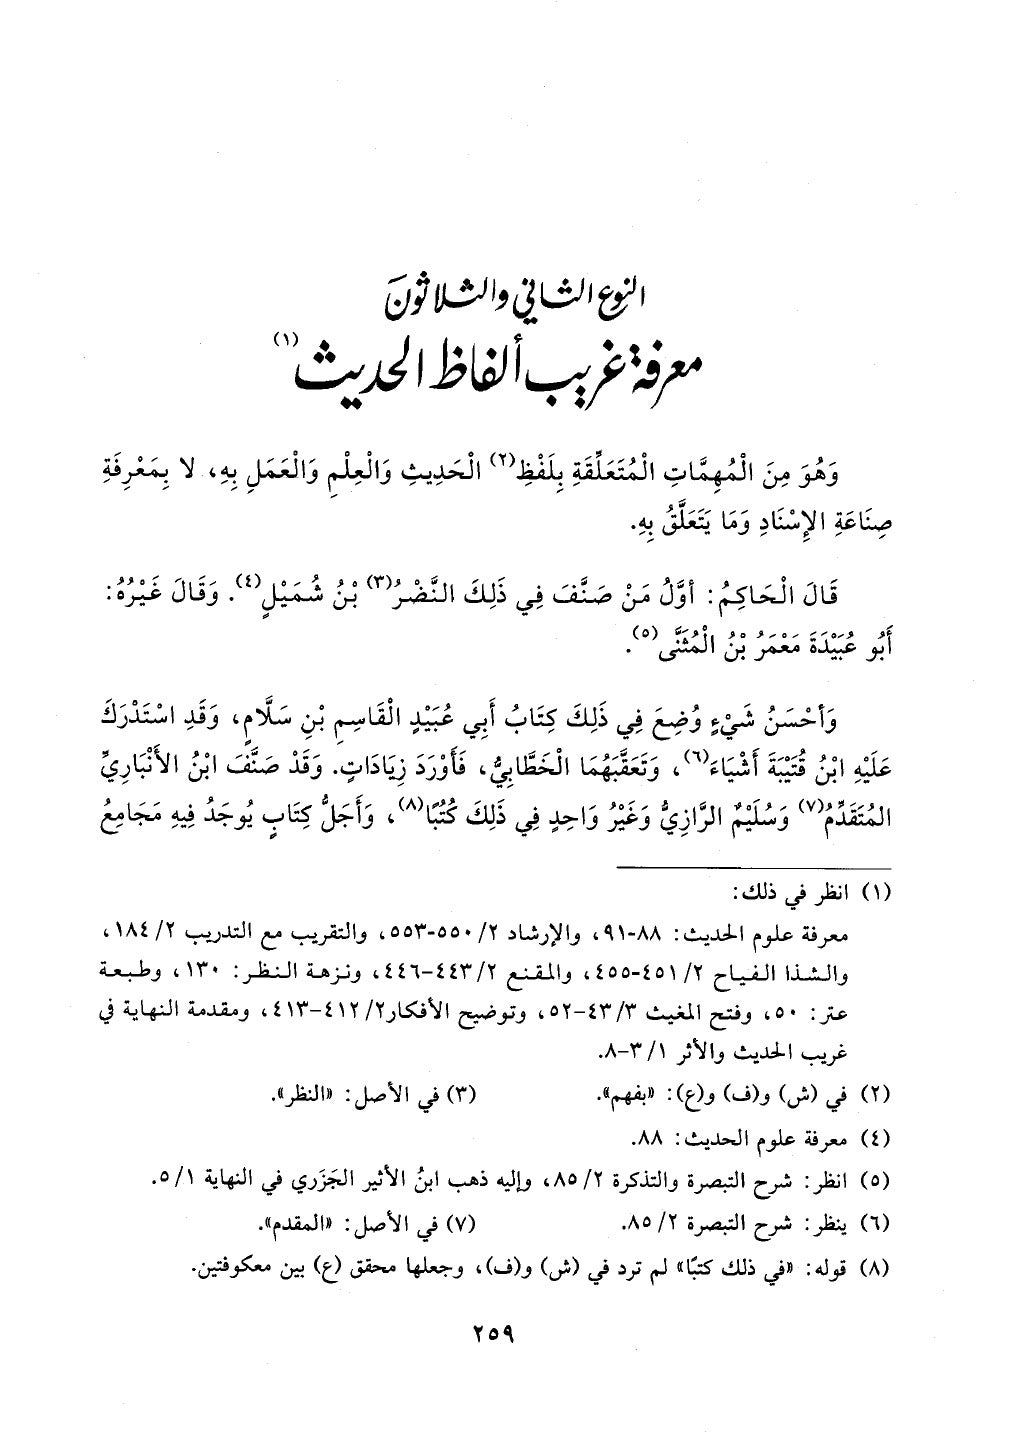 النوع الثاني والثلاثونَ
معرفة غريب ألفاظ الحديث(١)
وَهُوَ مِنَ الْمُهِمَّاتِ الْمُتَعَلِّقَةِ بِلَفْظِ(٢) الْحَدِيثِ وَالْعِلْمِ وَالْعَمَلِ بِهِ، لا بِمَعْرِفَةِ
صِنَاعَةِ الإِسْنَادِ وَمَا يَتَعَلَّقُ بِهِ.
قَالَ الْحَاكِمُ: أوَّلُ مَنْ صَنَّفَ فِي ذَلِكَ النَّضْرُ(٣) بْنُ شُمَيْلٍ(٤). وَقَالَ غَيْرُهُ:
أَبُو عُبَيْدَةَ مَعْمَرُ بْنُ الْمُثَنَّى(٥).
وَأحْسَنُ شَيْءٍ وُضِعَ فِي ذَلِكَ كِتَابُ أَبِي عُبَيْدٍ الْقَاسِمِ بْنِ سَلَّامٍ، وَقَدِ اسْتَدْرَكَ
عَلَيْهِ ابْنُ قُتَيْبَةَ أَشْيَاءَ(٦)، وَتَعَقَّبَهُمَا الْخَطَّابِيُّ، فَأَوْرَدَ زِيَادَاتٍ. وَقَدْ صَنَّفَ ابْنُ الأَنْبَارِيِّ
المُتَقَدِّمُ(٧) وَسُلَيْمٌ الرَّازِيُّ وَغَيْرُ وَاحِدٍ فِي ذَلِكَ كُتُبًا(٨)، وَأَجَلُّ كِتَابٍ يُوجَدُ فِيهِ مَجَامِعُ
(١) انظر في ذلك:
معرفة علوم الحديث: ٨٨-٩١، والإرشاد ٢/ ٥٥٠-٥٥٣، والتقريب مع التدريب ٢/ ١٨٤،
والشذا الفياح ٢/ ٤٥١-٤٥٥، والمقنع ٢/ ٤٤٣-٤٤٦، ونزهة النظر: ١٣٠، وطبعة
عتر: ٥٠، وفتح المغيث ٣/ ٤٣-٥٢، وتوضيح الأفكار٢/ ٤١٢-٤١٣، ومقدمة النهاية في
غريب الحديث والأثر ١/ ٣-٨.
(٢) في (ش) و(ف) و(ع): «بفهم». (٣) في الأصل: «النظر».
(٤) معرفة علوم الحديث: ٨٨.
(٥) انظر: شرح التبصرة والتذكرة ٢/ ٨٥، وإليه ذهب ابنُ الأثير الجَزَري في النهاية ١/ ٥.
(٦) ينظر: شرح التبصرة ٢/ ٨٥. (٧) في الأصل: «المقدم».
(٨) قوله: «في ذلك كتبًا» لم ترد في (ش) و(ف)، وجعلها محقق (ع) بين معكوفتين.
٢٥٩